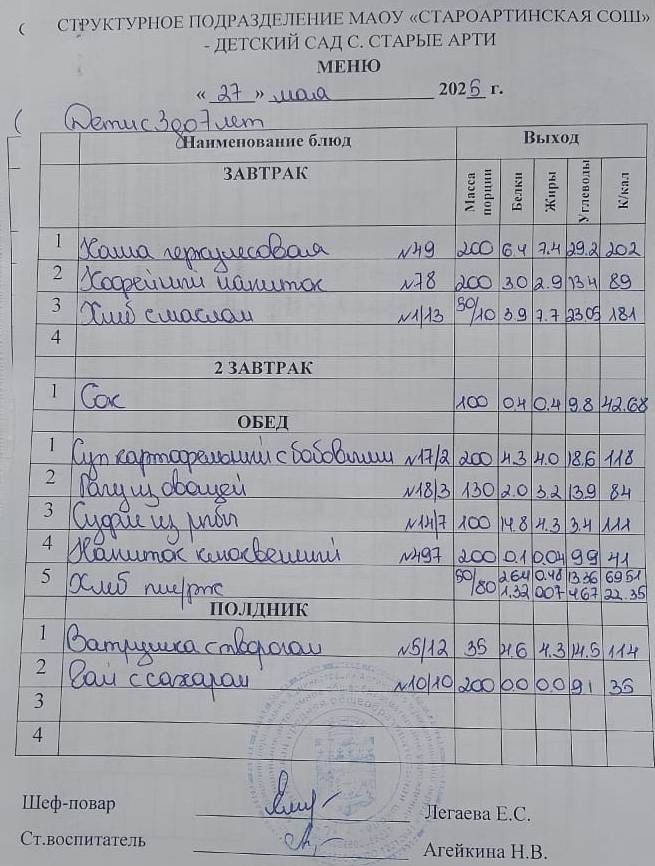 СТРУКТУРНОЕ ПОДРАЗДЕЛЕНИЕ МАОУ «СТАРОАРТИНСКАЯ СОШ»
- ДЕТСКИЙ САД С. СТАРЫЕ АРТИ
МЕНЮ
« 27 » мая 2026 г.
Дети с 3 до 7 лет
Наименование блюд Выход
ЗАВТРАК Масса порции Белки Жиры Углеводы К/кал
1 Каша геркулесовая №49 200 6.4 7.4 29.2 202
2 Кофейный напиток №78 200 3.0 2.9 13.4 89
3 Хлеб с маслом №1/13 50/10 3.9 7.7 23.05 181
4
2 ЗАВТРАК
1 Сок 100 0.4 0.4 9.8 42.68
ОБЕД
1 Суп картофельный с бобовыми №17/2 200 4.3 4.0 18.6 118
2 Рагу из овощей №18/3 130 2.0 3.2 13.9 84
3 Суфле из рыбы №14/7 100 14.8 4.3 3.4 111
4 Напиток клюквенный №497 200 0.1 0.04 9.9 41
5 Хлеб пше/рж 50/80 2.64 0.48 13.36 69.51
1.32 0.07 4.67 22.35
ПОЛДНИК
1 Ватрушка с творогом №5/12 35 4.6 4.3 14.5 114
2 Чай с сахаром №10/10 200 0.0 0.0 9.1 35
3
4
Шеф-повар Легаева Е.С.
Ст.воспитатель Агейкина Н.В.